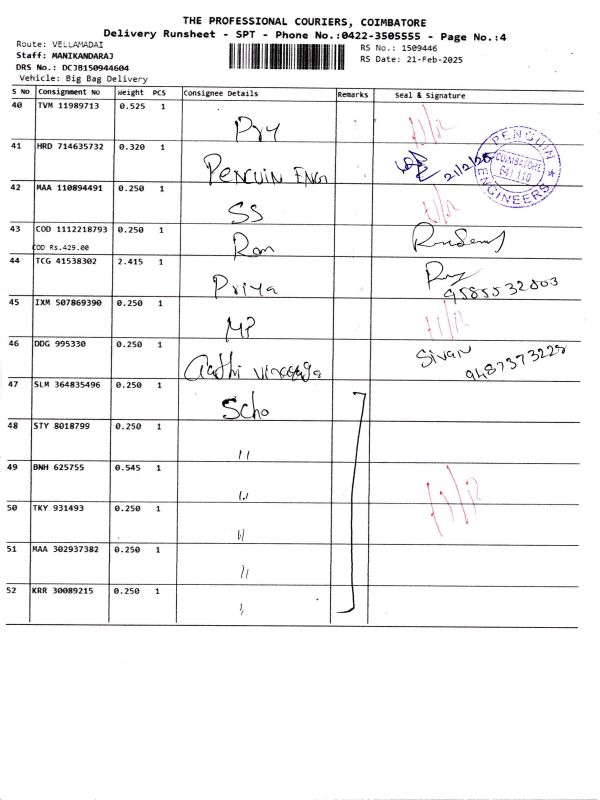 THE PROFESSIONAL COURIERS, COIMBATORE
Delivery Runsheet - SPT - Phone No.:0422-3505555 - Page No.:4
Route: VELLAMADAI
RS No.: 1509446
Staff: MANIKANDARAJ
RS Date: 21-Feb-2025
DRS No.: DCJB150944604
Vehicle: Big Bag Delivery
S No Consignment No Weight PCS Consignee Details Remarks Seal & Signature
40 TVM 11989713 0.525 1
41 HRD 714635732 0.320 1 PENGUIN ENGI 21/2/25
PENGUIN ENGINEERS ★ COIMBATORE 641 110
42 MAA 110894491 0.250 1 SS
43 COD 1112218793 0.250 1 Ram
COD Rs.429.00
44 TCG 41538302 2.415 1 Priya
45 IXM 507869390 0.250 1 MP
46 DDG 995330 0.250 1 Aathi Sivan
47 SLM 364835496 0.250 1 Scho
48 STY 8018799 0.250 1 "
49 BNH 625755 0.545 1 "
50 TKY 931493 0.250 1 "
51 MAA 302937382 0.250 1 "
52 KRR 30089215 0.250 1 "